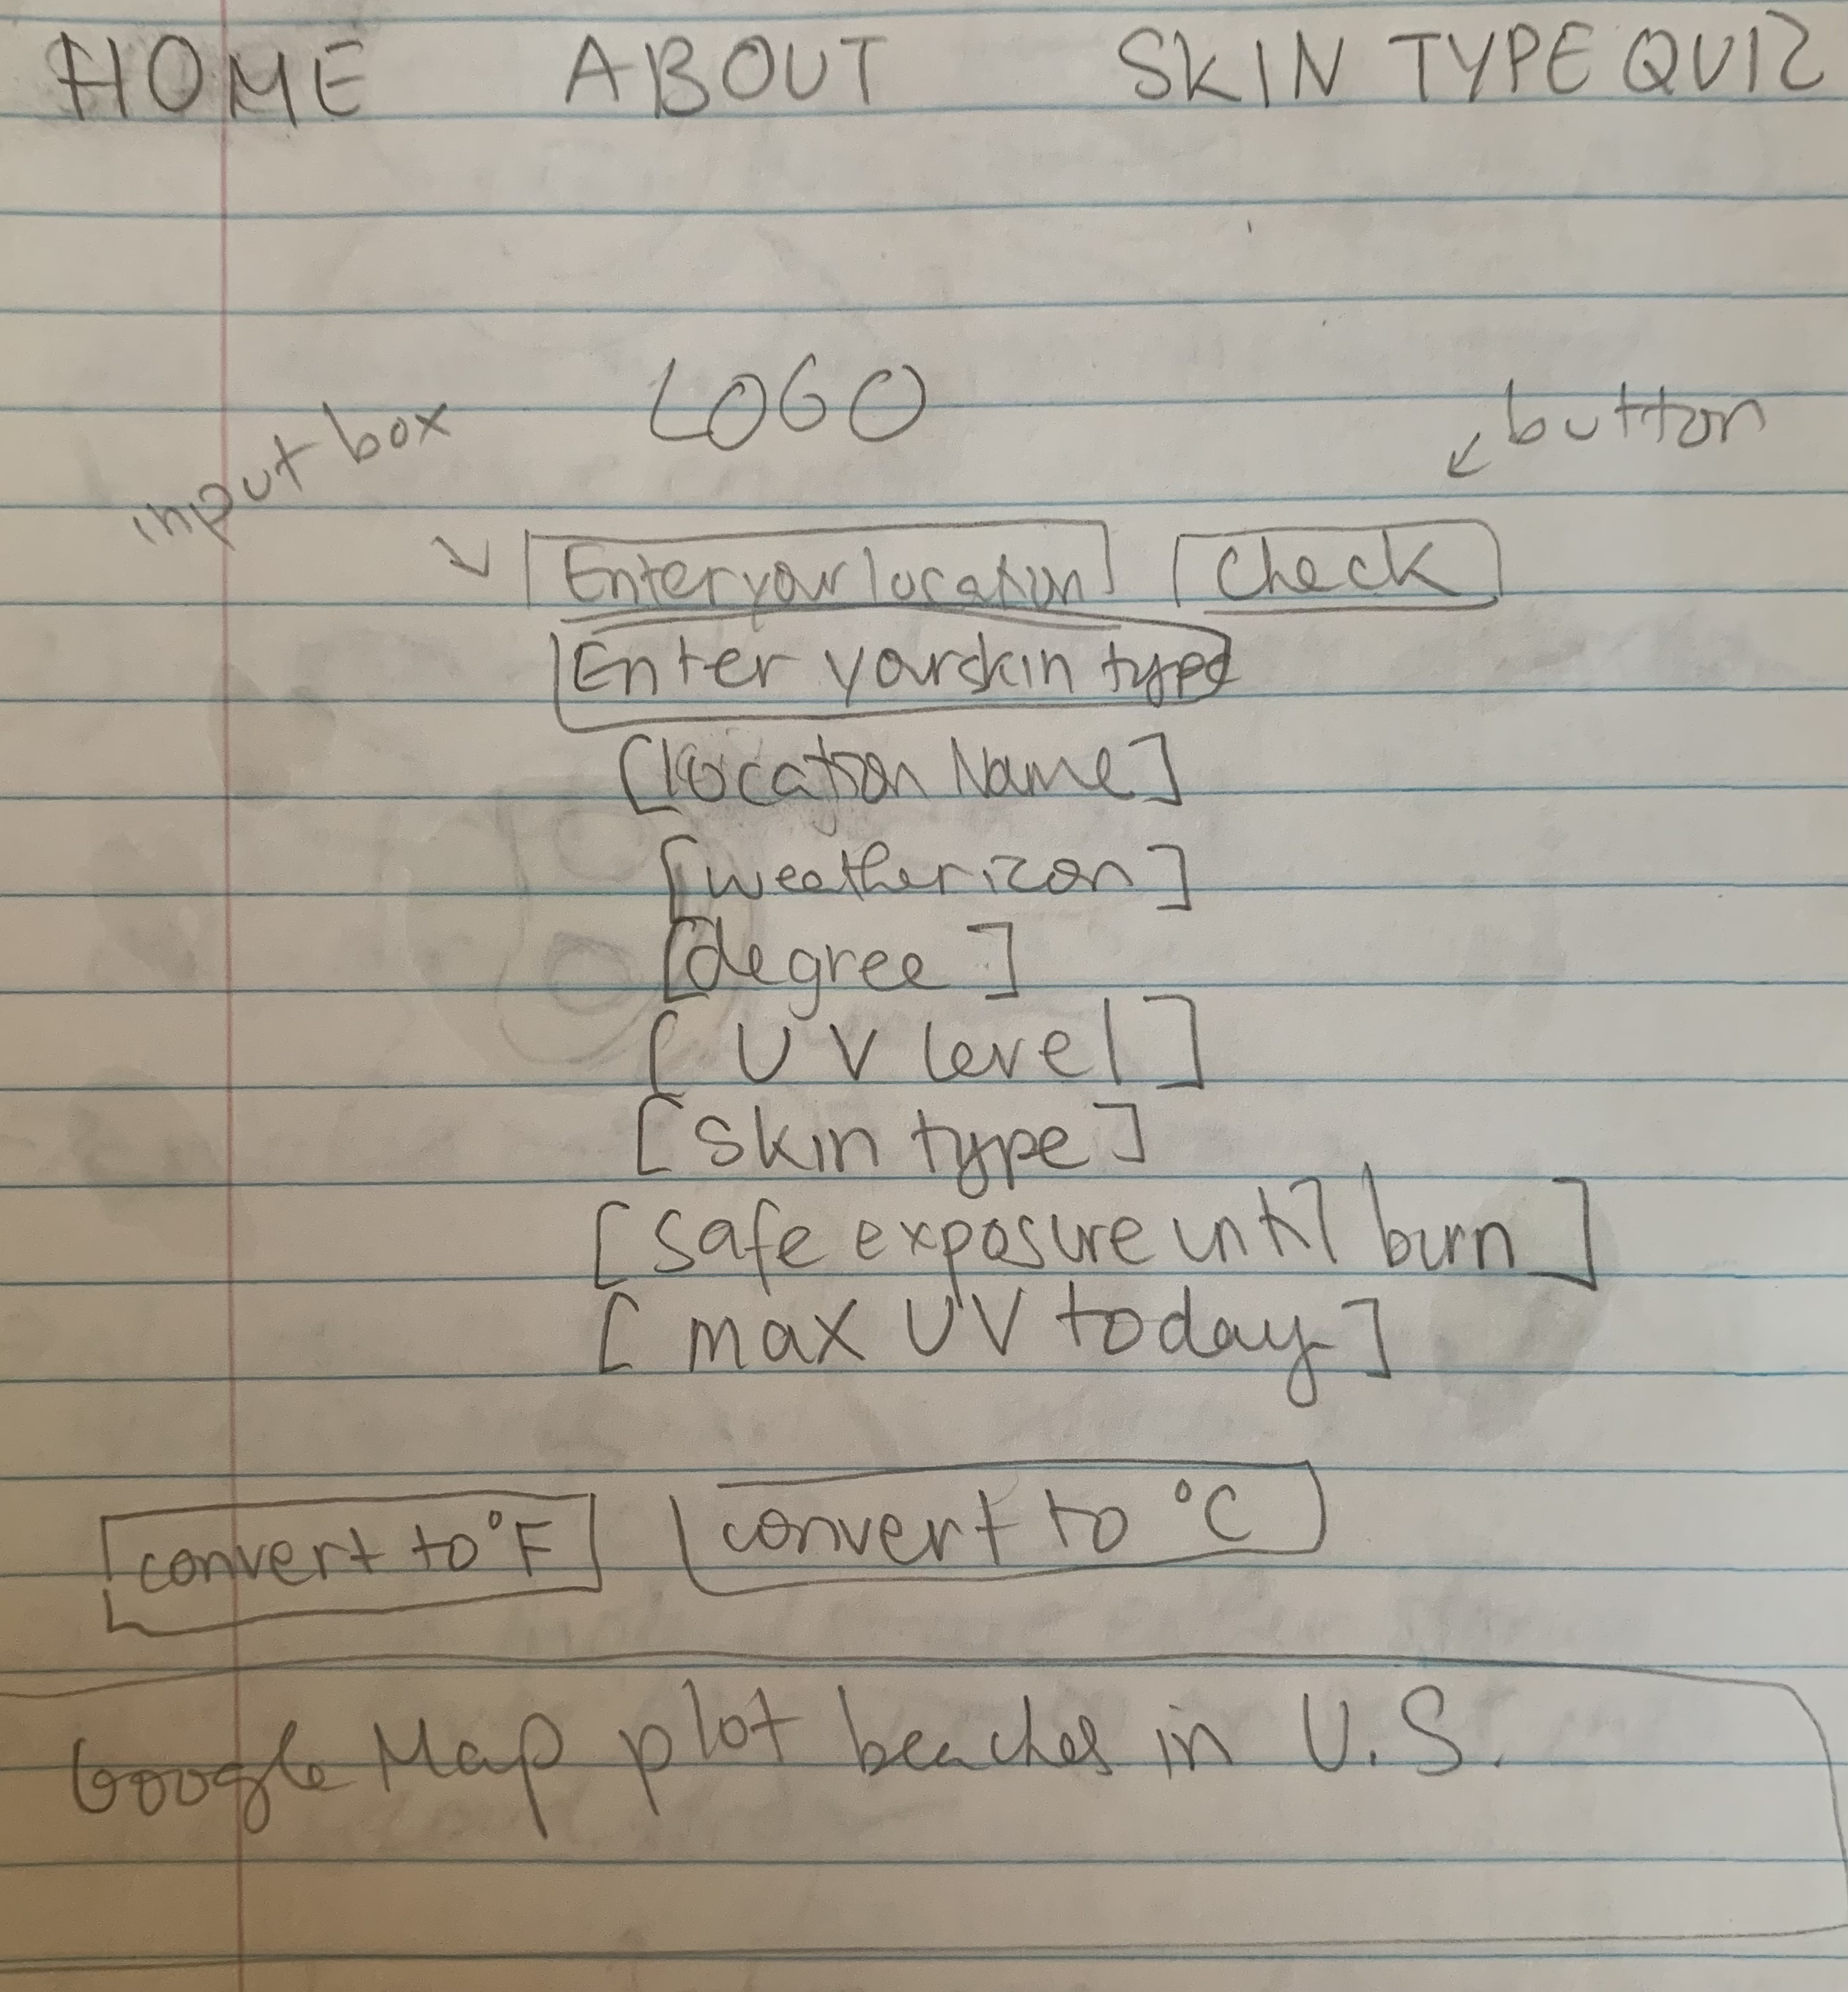 HOME ABOUT SKIN TYPE QUIZ
LOGO
input box
button
Enter your location Check
Enter your skin type
[location Name]
[weather icon]
[degree]
[UV level]
[skin type]
[safe exposure until burn]
[max UV today]
convert to °F convert to °C
Google Map plot beaches in U.S.